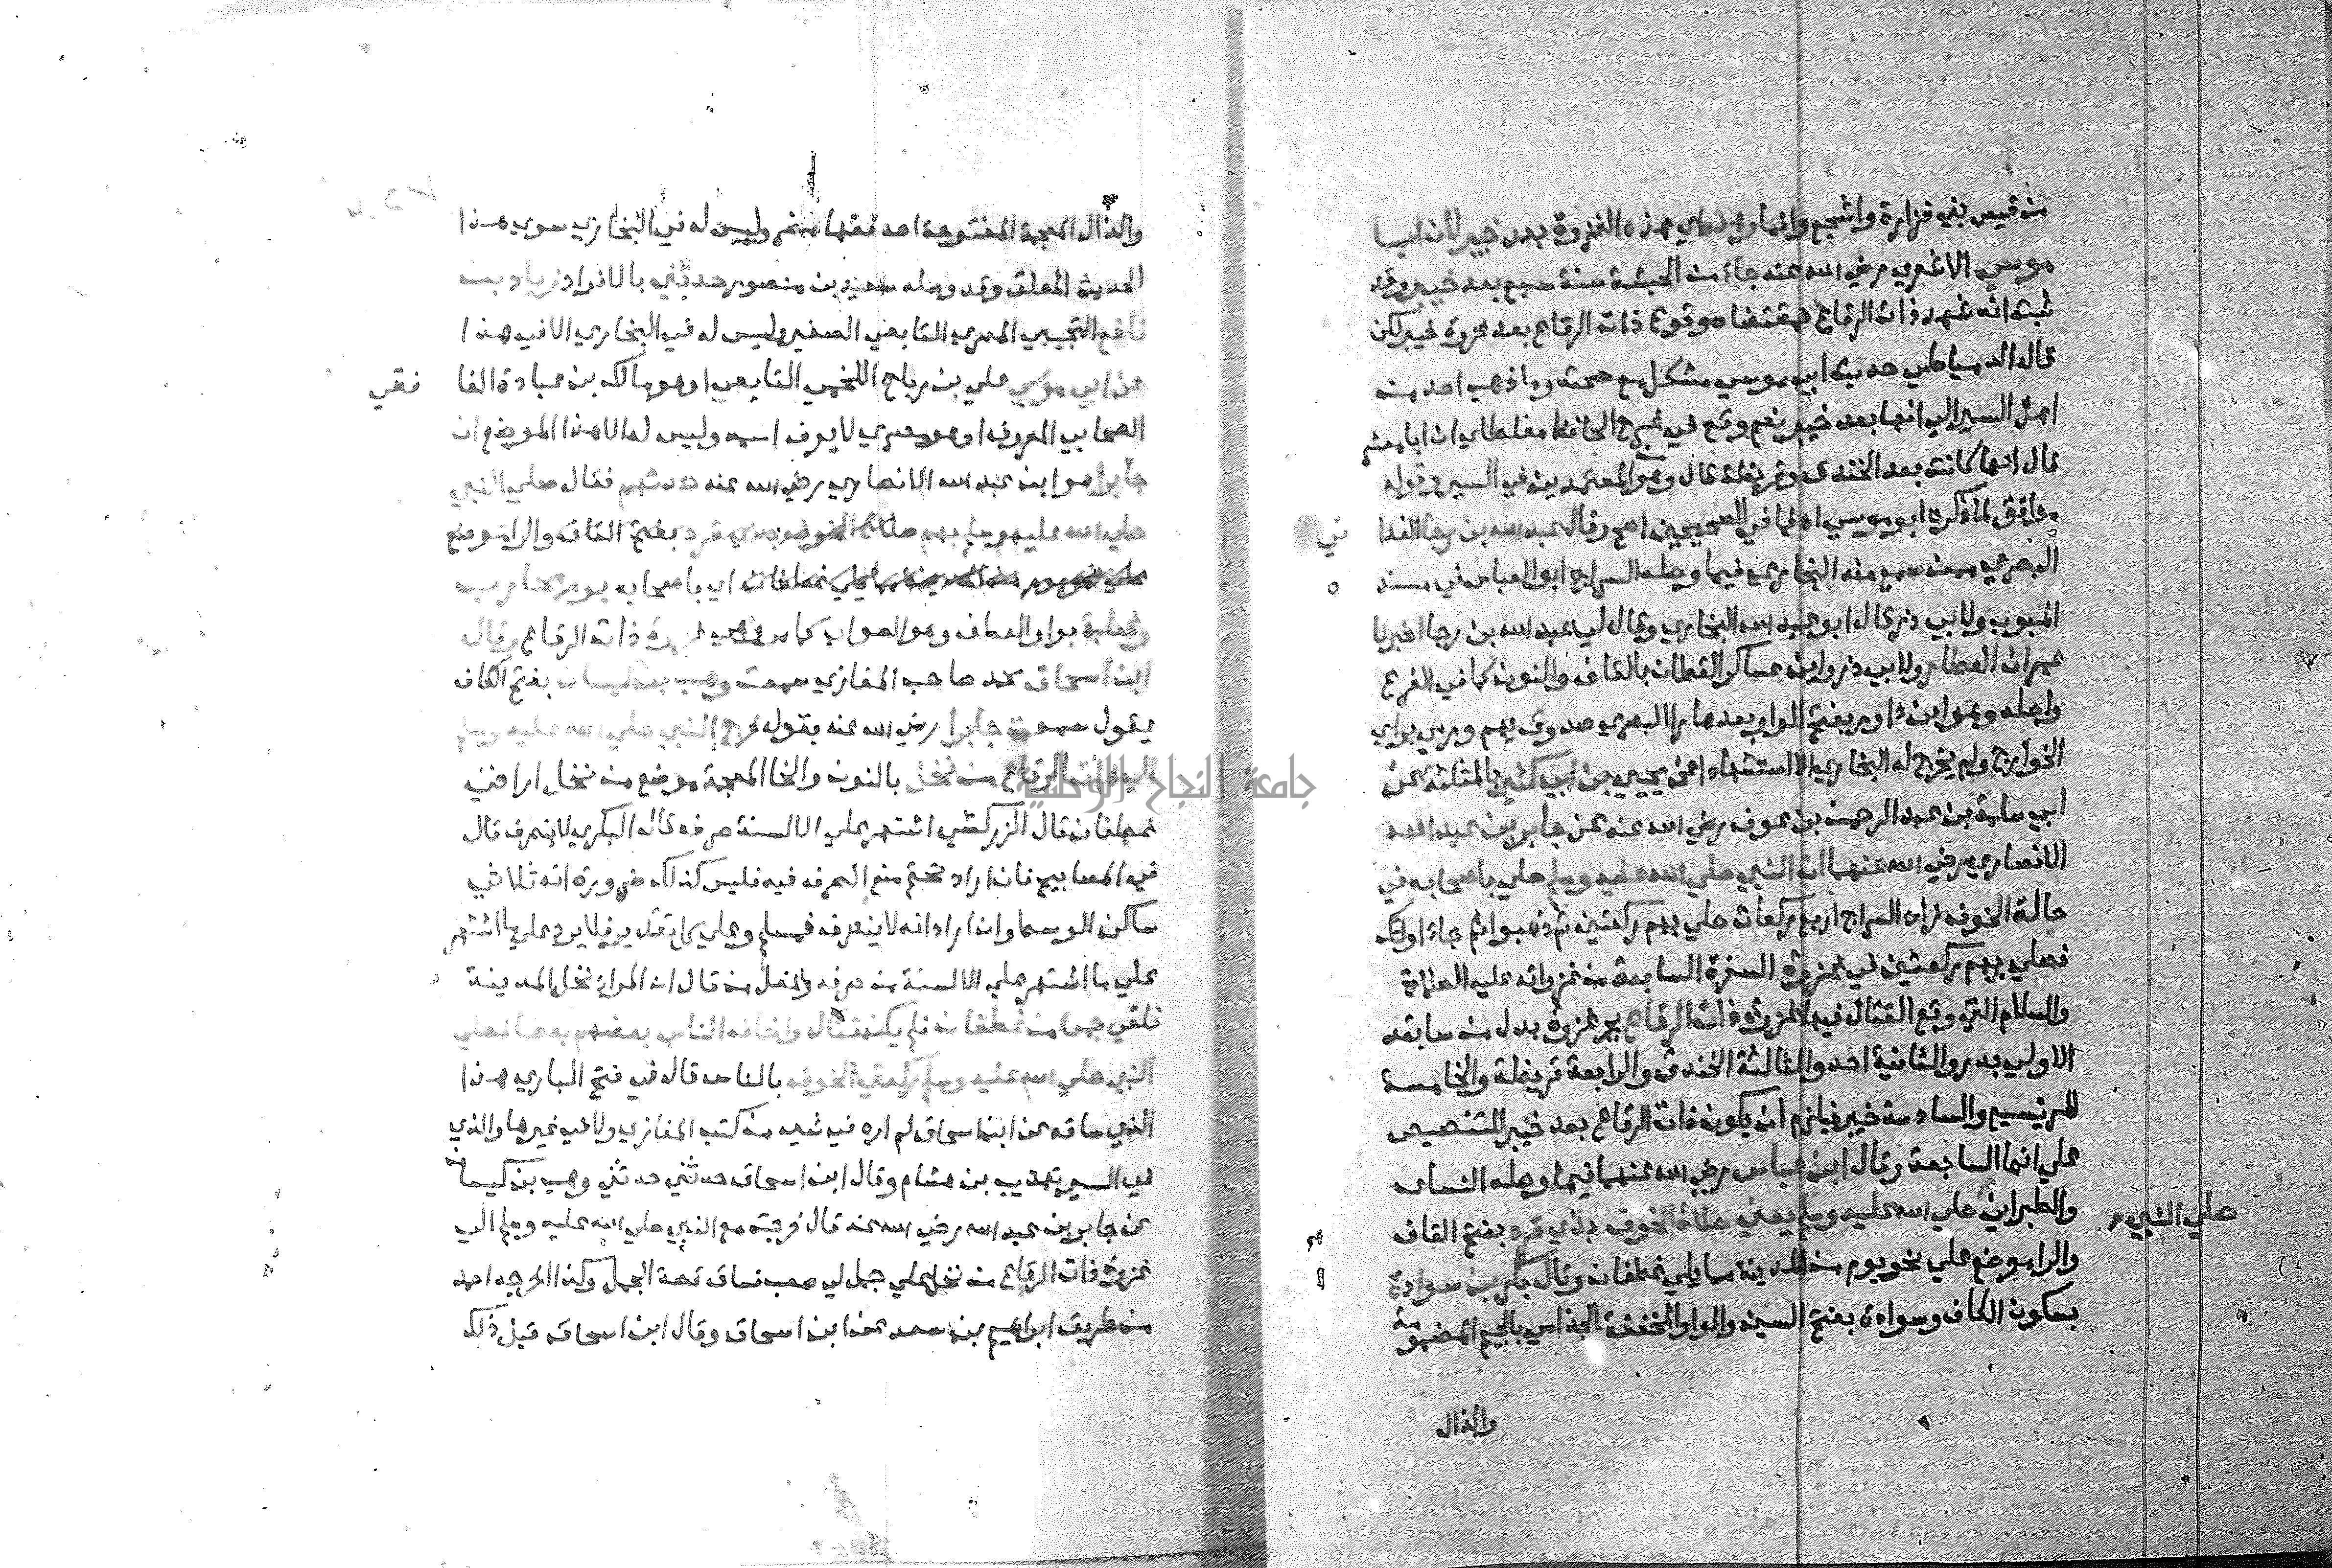 من قيس بني فزارة واشجع وانمار وهذه اي هذه الغزوة بعد خيبر لان ابا
موسي الاشعري رضي الله عنه جاء من الحبشة سنة سبع بعد خيبر وقد
ثبت انه شهد ذات الرقاع فمقتضاه وقوع ذات الرقاع بعد غزوة خيبر لكن
قال الدمياطي حديث ابي موسي مشكل مع صحته وما ذهب احد من
اهل السير الي انها بعد خيبر نعم وقع في شرح الحافظ مغلطاي ان ابا معشر
قال انها كانت بعد الخندق وقريظة قال وهو المعتمد في السير وقوله
موافق لما ذكره ابو موسي اه لما في الصحيحين اصح وقال عبد الله بن رجا الغدا
ني
البصري ممن سمع منه البخاري فيما وصله السراج ابو العباس في مسنده
المبوب ولابي ذر قال ابو عبد الله البخاري وقال لي عبد الله بن رجا اخبرنا
عمران العطار ولابي ذر وابن عساكر القطان بالقاف والنون كما في الفرع
واصله وهو ابن داور بفتح الواو بعدها را البصري صدوق يهم ورمي براي
الخوارج ولم يخرج له البخاري الا استشهادا عن يحيي بن ابي كثير بالمثلثة عن
ابي سلمة بن عبد الرحمن بن عوف رضي الله عنه عن جابر بن عبد الله
الانصاري رضي الله عنهما ان النبي صلي الله عليه وسلم صلي باصحابه في
حالة الخوف زاد السراج اربع ركعات صلي بهم ركعتين ثم ذهبوا ثم جاء اولئك
فصلي بهم ركعتين في غزوة السفرة السابعة من غزواته عليه الصلاة
والسلام التي وقع القتال فيها غزوة ذات الرقاع بجر غزوة بدل من سابقه
الاولي بدر والثانية احد والثالثة الخندق والرابعة قريظة والخامسة
المريسيع والسادسة خيبر فيلزم ان يكون ذات الرقاع بعد خيبر للتنصيص
علي انها السابعة وقال ابن عباس رضي الله عنهما فيما وصله النساي
والطبراني صلي النبي صلي الله عليه وسلم يعني صلاة الخوف بذي قرد بفتح القاف
والرا موضع علي نحو يوم من المدينة مما يلي غطفان وقال بكر بن سوادة
بسكون الكاف وسوادة بفتح السين والواو المخففة الجذامي بالجيم المضمومة
والذال
والذال المعجمة المفتوحة احد فقها مصر وليس له في البخاري سوي هذا
الحديث المعلق وقد وصله سعيد بن منصور حدثني بالافراد زياد بن
نافع التجيبي المصري التابعي الصغير وليس له في البخاري الا في هذا
عن ابي موسي علي بن رباح اللخمي التابعي او هو مالك بن عبادة الغا
فقي
الصحابي المعروف او هو مصري لا يعرف اسمه وليس له الا هذا الموضع ان
جابرا هو ابن عبد الله الانصاري رضي الله عنه حدثهم فقال صلي النبي
صلي الله عليه وسلم بهم صلاة الخوف بذي قرد بفتح القاف والرا موضع
علي نحو يوم من المدينة مما يلي غطفان اي باصحابه يوم محارب
وثعلبة بواو العطف وهو الصواب كما ذات الرقاع وقال
ابن اسحاق محمد صاحب المغازي سمعت وهب بن كيسان بفتح الكاف
يقول سمعت جابرا رضي الله عنه يقول خرج النبي صلي الله عليه وسلم
الي ذات الرقاع من نخل بالنون والخا المعجمة موضع من نخل اراضي
غطفان قال الزركشي اشتهر علي الالسنة صرفه قال البكري لا ينصرف قال
في المصابيح فان اراد تحتم منع الصرف فيه فليس كذلك ضرورة انه ثلاثي
ساكن الوسط وان اراد انه لا ينصرف فمسلم وعلي كل تقدير فلا يرد علي ما اشتهر
علي ما اشتهر علي الالسنة من صرفه وغفل من قال ان المراد نخل المدينة
فلقي جمعا من غطفان فلم يكن قتال واخاف الناس بعضهم بعضا فصلي
النبي صلي الله عليه وسلم ركعتي الخوف بالناس قال في فتح الباري هذا
الذي ساقه عن ابن اسحاق لم اره في شيء من كتب المغازي ولا في غيرها والذي
في السير تهذيب بن هشام وقال ابن اسحاق حدثني حدثني وهب بن كيسان
عن جابر بن عبد الله رضي الله عنه قال خرجت مع النبي صلي الله عليه وسلم الي
غزوة ذات الرقاع من نخل علي جمل لي صعب فساق قصة الجمل وكذا اخرجه احمد
من طريق ابراهيم بن سعد عن ابن اسحاق وقال ابن اسحاق قبل ذلك
جامعة النجاح الوطنية